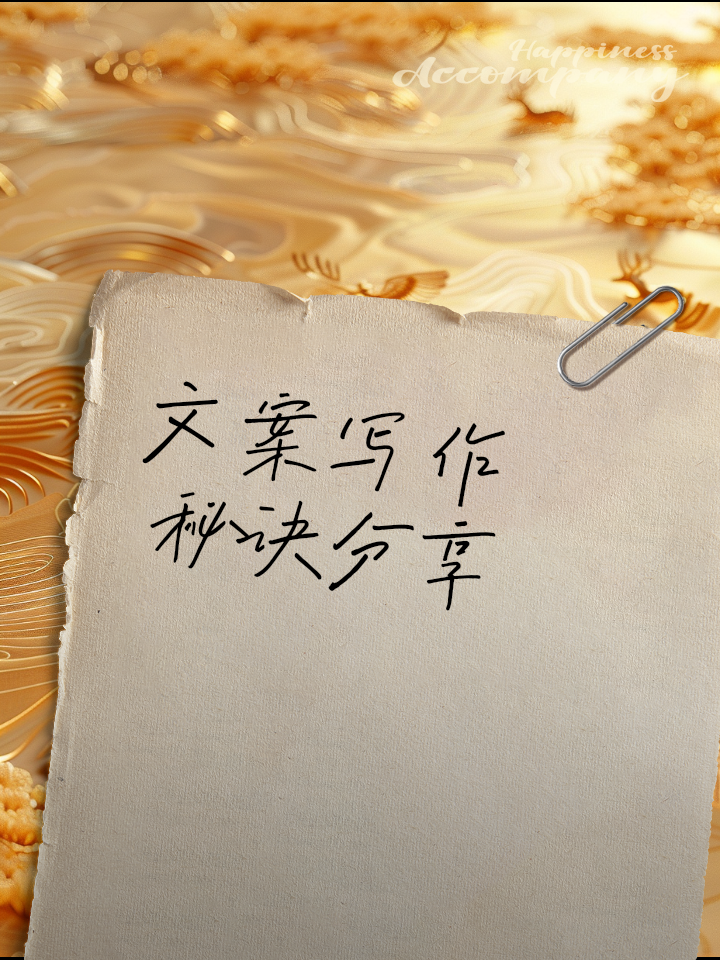 Happiness
Accompany
文案写作
秘诀分享